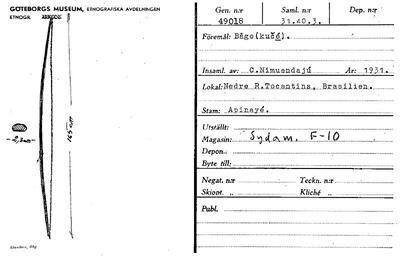 GÖTEBORGS MUSEUM, ETNOGRAFISKA AVDELNINGEN
ETNOGR.
2,2 cm
165 cm
Gen. n:r Saml. n:r Dep. n:r
49018 31.40.3.
Föremål: Båge(kuđé).
Insaml. av: C.Nimuendajú År: 1931.
Lokal: Nedre R.Tocantins, Brasilien.
Stam: Apinayé.
Utställt:
Magasin: Sydam. F-10
Depon.
Byte till:
Negat. n:r Teckn. n:r
Skiopt. „ Kliché „
Publ.